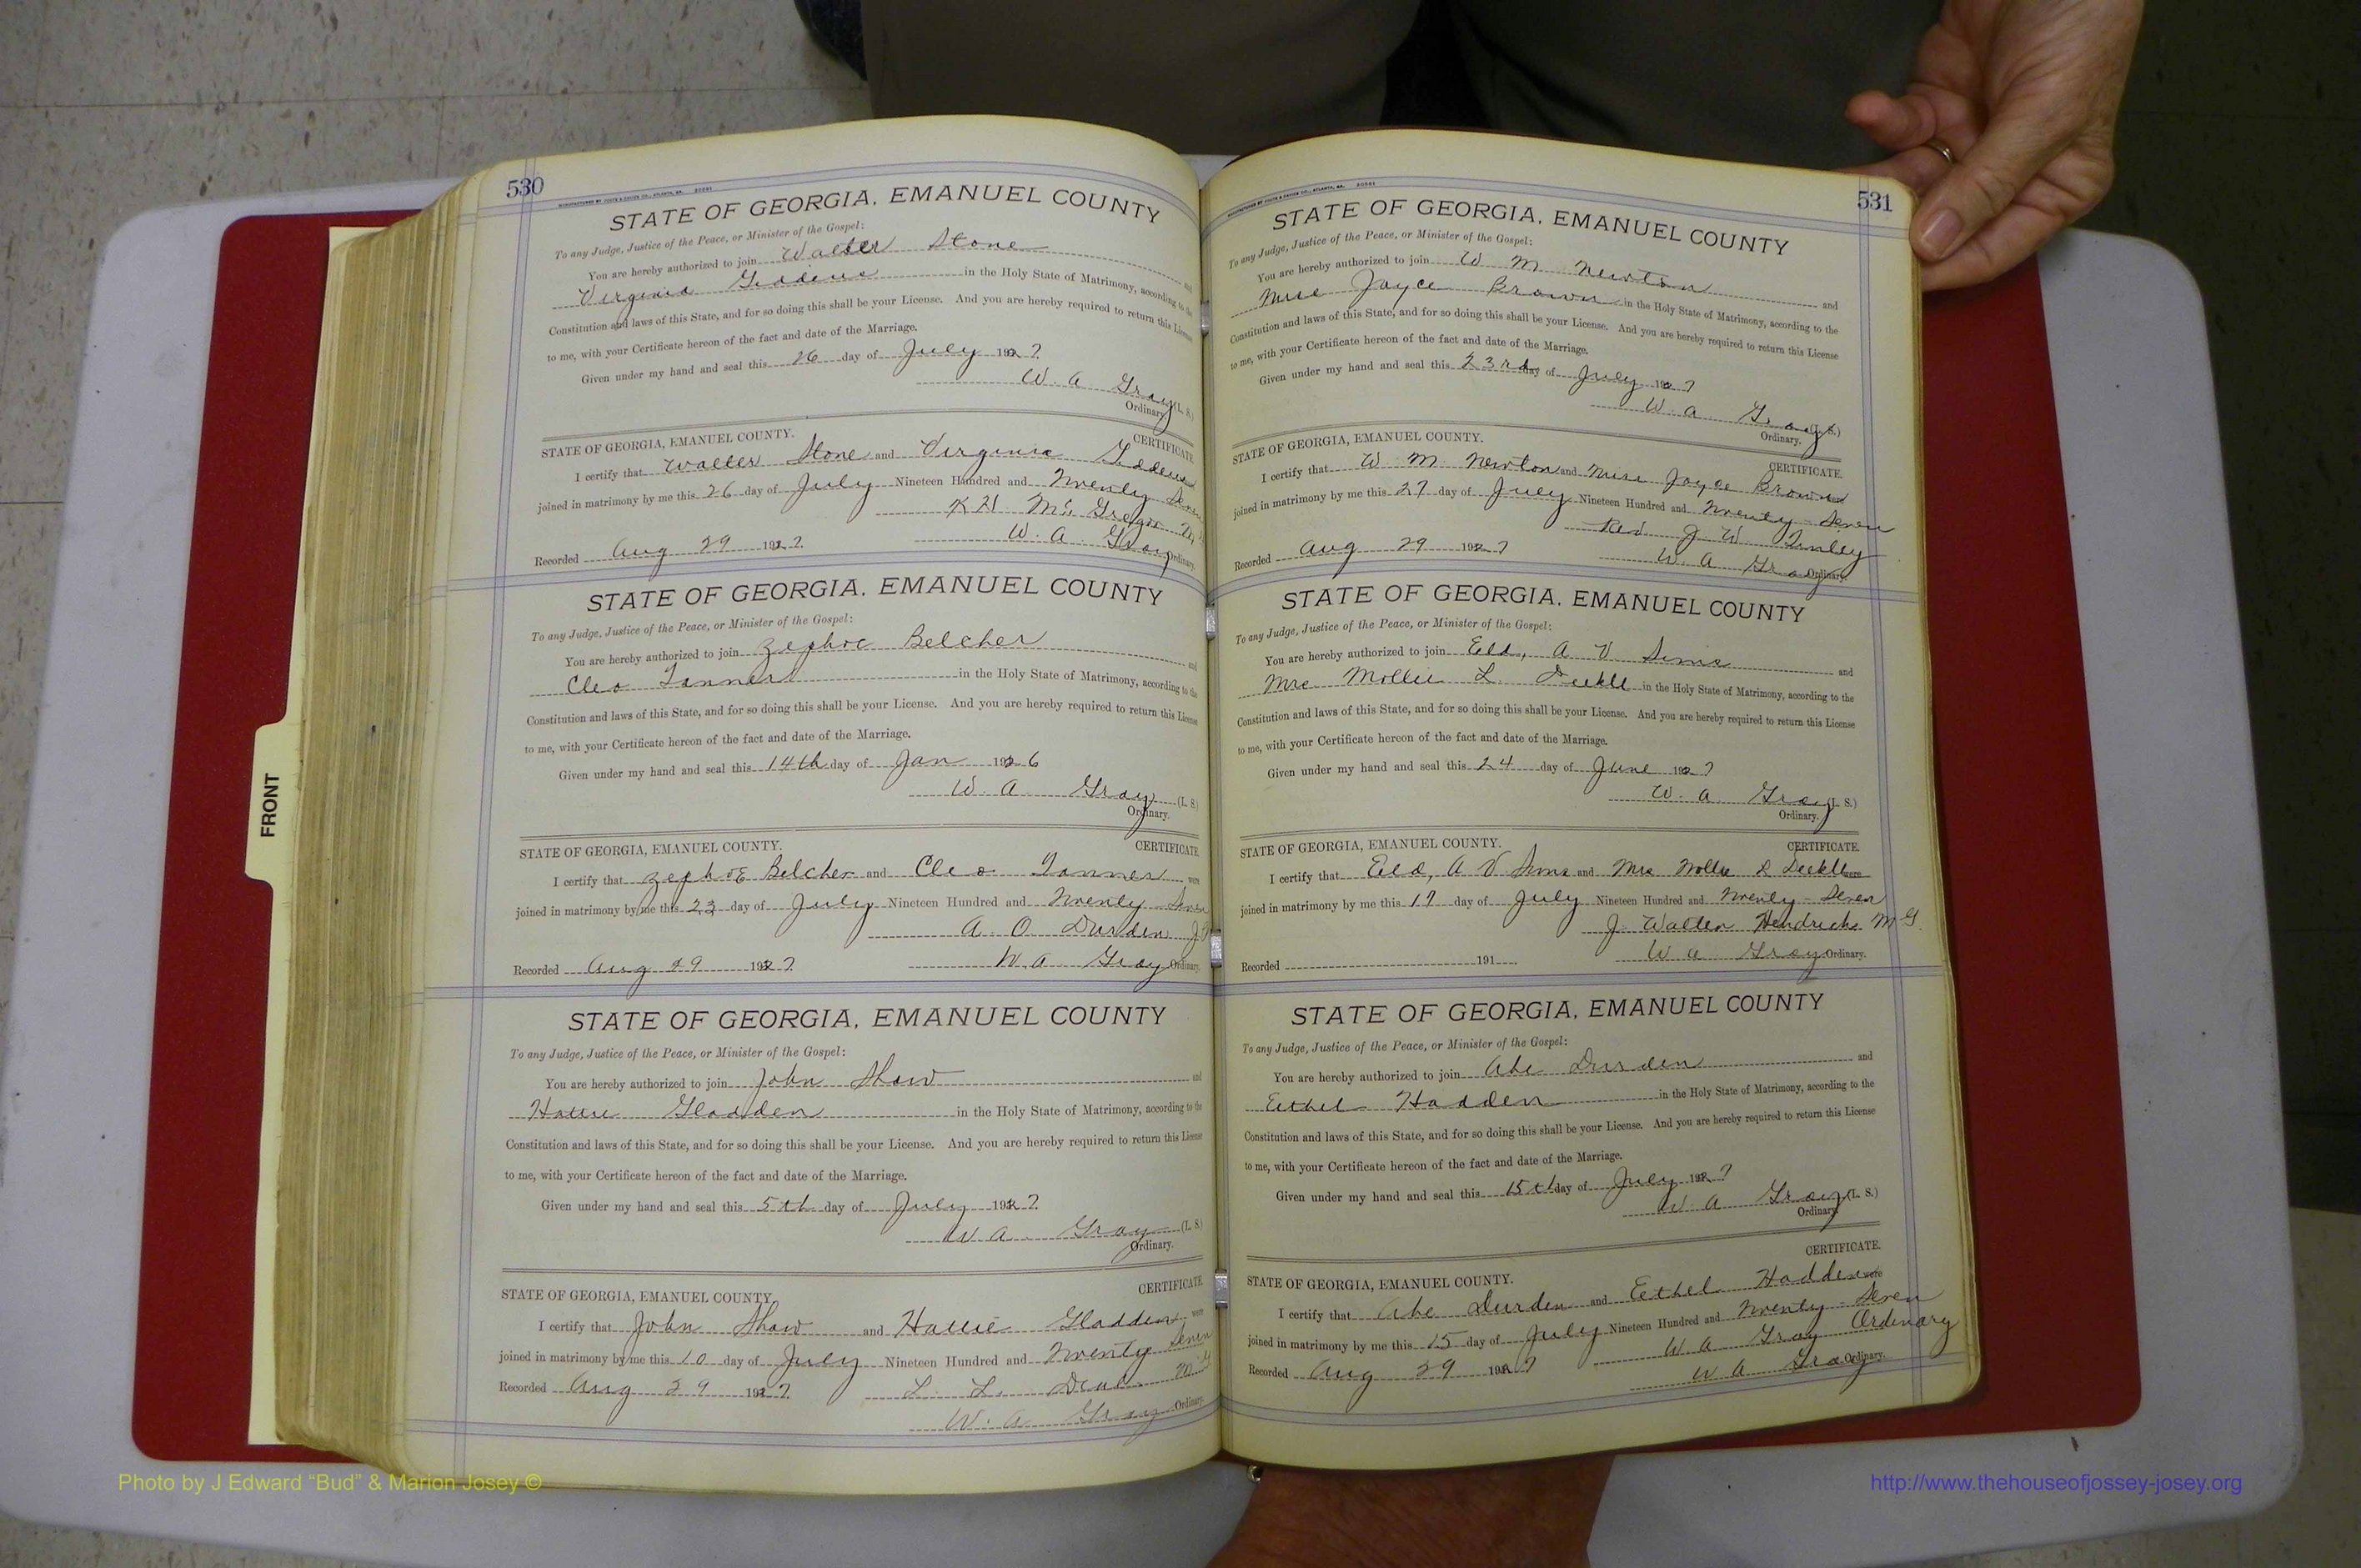 530
STATE OF GEORGIA, EMANUEL COUNTY
To any Judge, Justice of the Peace, or Minister of the Gospel:
You are hereby authorized to join Walter Stone and
Virginia in the Holy State of Matrimony, according to the
Constitution and laws of this State, and for so doing this shall be your License. And you are hereby required to return this License
to me, with your Certificate hereon of the fact and date of the Marriage.
Given under my hand and seal this 26 day of July 1927
W. A Gray (L. S.)
Ordinary.
STATE OF GEORGIA, EMANUEL COUNTY.
CERTIFICATE.
I certify that Walter Stone and Virginia
joined in matrimony by me this 26 day of July Nineteen Hundred and Twenty Seven
Mc Gregor
Recorded Aug 29 1927 W. A. Gray Ordinary.
STATE OF GEORGIA, EMANUEL COUNTY
To any Judge, Justice of the Peace, or Minister of the Gospel:
You are hereby authorized to join Belcher and
Cleo Tanner in the Holy State of Matrimony, according to the
Constitution and laws of this State, and for so doing this shall be your License. And you are hereby required to return this License
to me, with your Certificate hereon of the fact and date of the Marriage.
Given under my hand and seal this 14th day of Jan 1926
W. A Gray (L. S.)
Ordinary.
STATE OF GEORGIA, EMANUEL COUNTY.
CERTIFICATE.
I certify that Belcher and Cleo Tanner were
joined in matrimony by me this 23 day of July Nineteen Hundred and Twenty Seven
A. O. Durden
Recorded Aug 29 1927 W. A. Gray Ordinary.
STATE OF GEORGIA, EMANUEL COUNTY
To any Judge, Justice of the Peace, or Minister of the Gospel:
You are hereby authorized to join John Shaw and
Hattie Gladden in the Holy State of Matrimony, according to the
Constitution and laws of this State, and for so doing this shall be your License. And you are hereby required to return this License
to me, with your Certificate hereon of the fact and date of the Marriage.
Given under my hand and seal this 5th day of July 1927
W A. Gray (L. S.)
Ordinary.
CERTIFICATE.
STATE OF GEORGIA, EMANUEL COUNTY.
I certify that John Shaw and Hattie Gladden were
joined in matrimony by me this 10 day of July Nineteen Hundred and Twenty Seven
Recorded Aug 29 1927 L. L. Deal
W. A Gray Ordinary.
531
STATE OF GEORGIA, EMANUEL COUNTY
To any Judge, Justice of the Peace, or Minister of the Gospel:
You are hereby authorized to join W M Newton and
Miss Joyce Brown in the Holy State of Matrimony, according to the
Constitution and laws of this State, and for so doing this shall be your License. And you are hereby required to return this License
to me, with your Certificate hereon of the fact and date of the Marriage.
Given under my hand and seal this 23rd day of July 1927
W A Gray (L. S.)
Ordinary.
STATE OF GEORGIA, EMANUEL COUNTY.
CERTIFICATE.
I certify that W M Newton and Miss Joyce Brown were
joined in matrimony by me this 27 day of July Nineteen Hundred and Twenty-Seven
Rev J. W.
Recorded Aug 29 1927 W A Gray Ordinary.
STATE OF GEORGIA, EMANUEL COUNTY
To any Judge, Justice of the Peace, or Minister of the Gospel:
You are hereby authorized to join Eld, A V Sims and
Mrs Mollie L. Deekle in the Holy State of Matrimony, according to the
Constitution and laws of this State, and for so doing this shall be your License. And you are hereby required to return this License
to me, with your Certificate hereon of the fact and date of the Marriage.
Given under my hand and seal this 24 day of June 1927
W. A. Gray (L. S.)
Ordinary.
STATE OF GEORGIA, EMANUEL COUNTY.
CERTIFICATE.
I certify that Eld, A V Sims and Mrs Mollie L Deekle were
joined in matrimony by me this 17 day of July Nineteen Hundred and Twenty-Seven
J. Walter Hendricks M G.
Recorded 191 W A Gray Ordinary.
STATE OF GEORGIA, EMANUEL COUNTY
To any Judge, Justice of the Peace, or Minister of the Gospel:
You are hereby authorized to join Abe Durden and
Eethel Hadden in the Holy State of Matrimony, according to the
Constitution and laws of this State, and for so doing this shall be your License. And you are hereby required to return this License
to me, with your Certificate hereon of the fact and date of the Marriage.
Given under my hand and seal this 15th day of July 1927
W. A Gray (L. S.)
Ordinary.
CERTIFICATE.
STATE OF GEORGIA, EMANUEL COUNTY.
I certify that Abe Durden and Eethel Hadden were
joined in matrimony by me this 15 day of July Nineteen Hundred and Twenty-Seven
W. A Gray Ordinary
Recorded Aug 29 1927 W A Gray Ordinary.
FRONT
Photo by J Edward “Bud” & Marion Josey ©
http://www.thehouseofjossey-josey.org